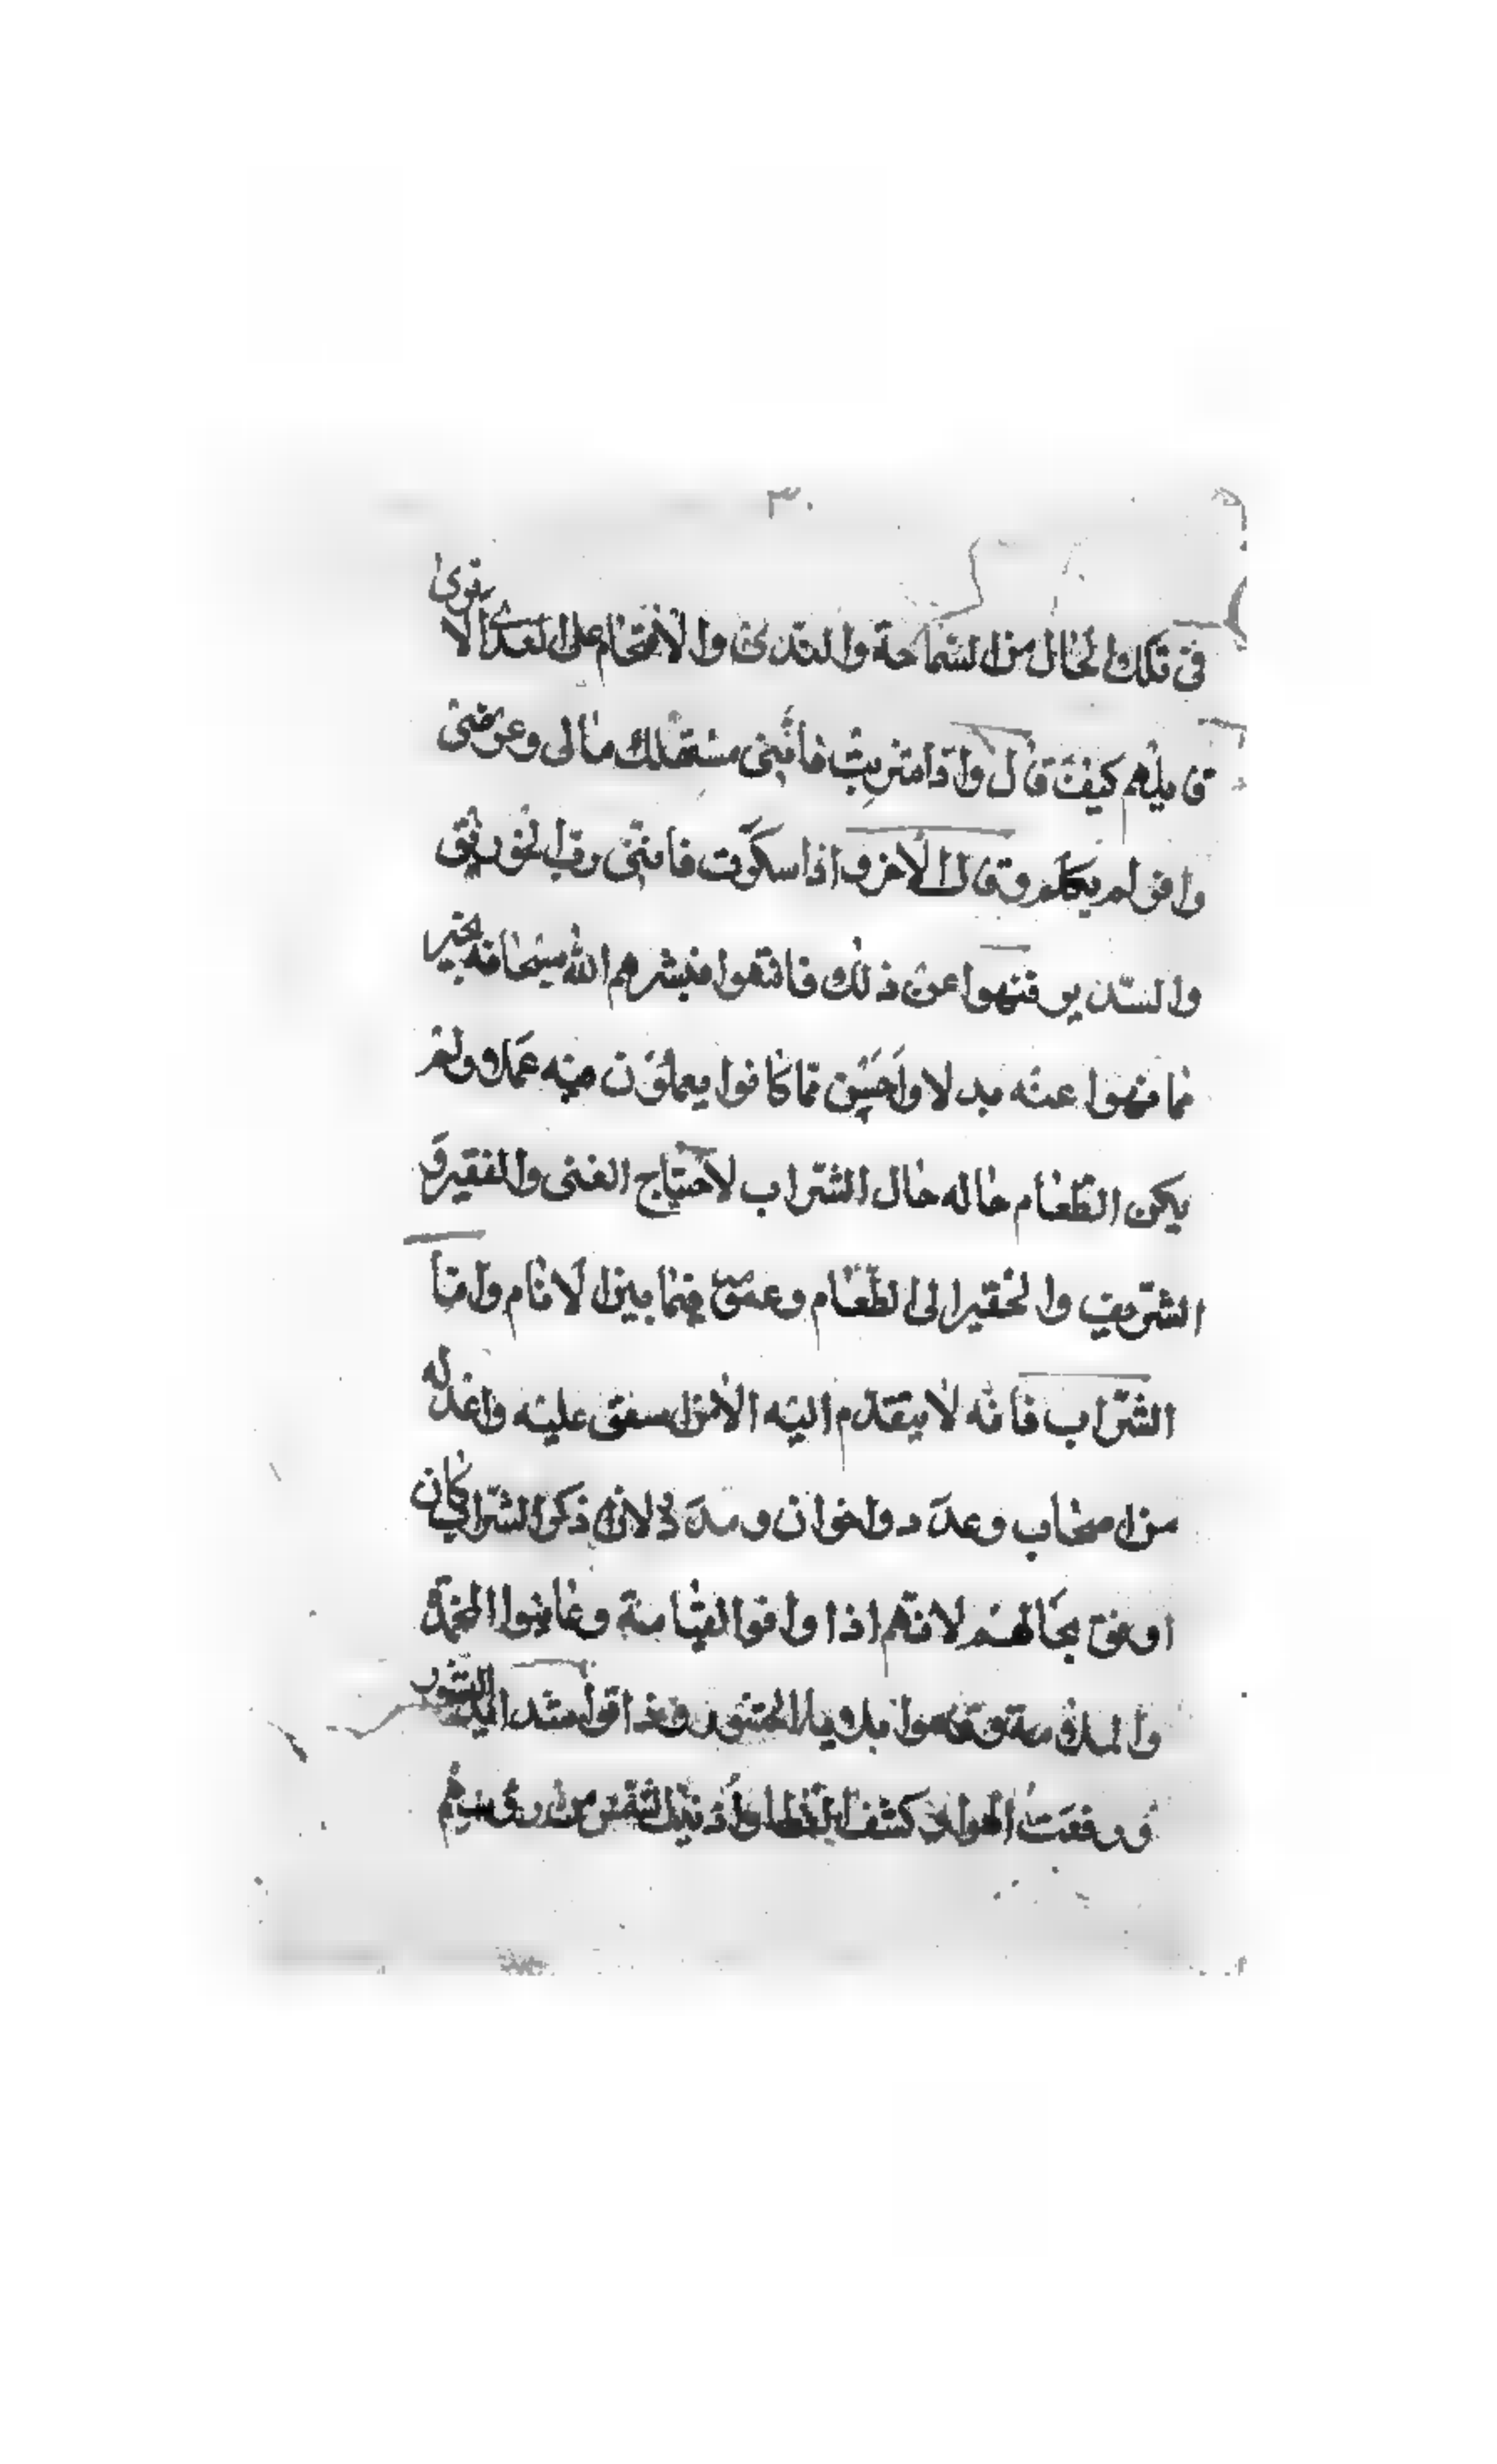 ٣٠
في تلك الحال من السماحة والتدنى والاقتحام على العدى الا ترى
قايلهم كيف قال واذا شربت فانني مستهلك مالى وعرضى
وافر لم يكلم وقال الآخر واذا سكرت فانني رب الخورنق
والسدير فنهوا عن ذلك فانتهوا فبشرهم الله سبحانه بخير
مما نهوا عنه بدلا واحسن مما كانوا يعملون فيه عملا ولم
يكن الطعام حاله حال الشراب لاحتياج الغنى والفقير و
الشريف والحقير الى الطعام وعمته فيما بين الانام واما
الشراب فانه لا يتقدم اليه الا من ينفق عليه واعد له
من اصحاب وعدد واخوان ومدد لان ذكر الشراب كان
اوفق بحالهم لانهم اذا وافوا القيامة وعاينوا
والندامة وقاموا بدويا المحشور وذاقوا شدائد النشور
ورفعت الهوادى كشف الغطا واذنيت الشمس من رؤسهم